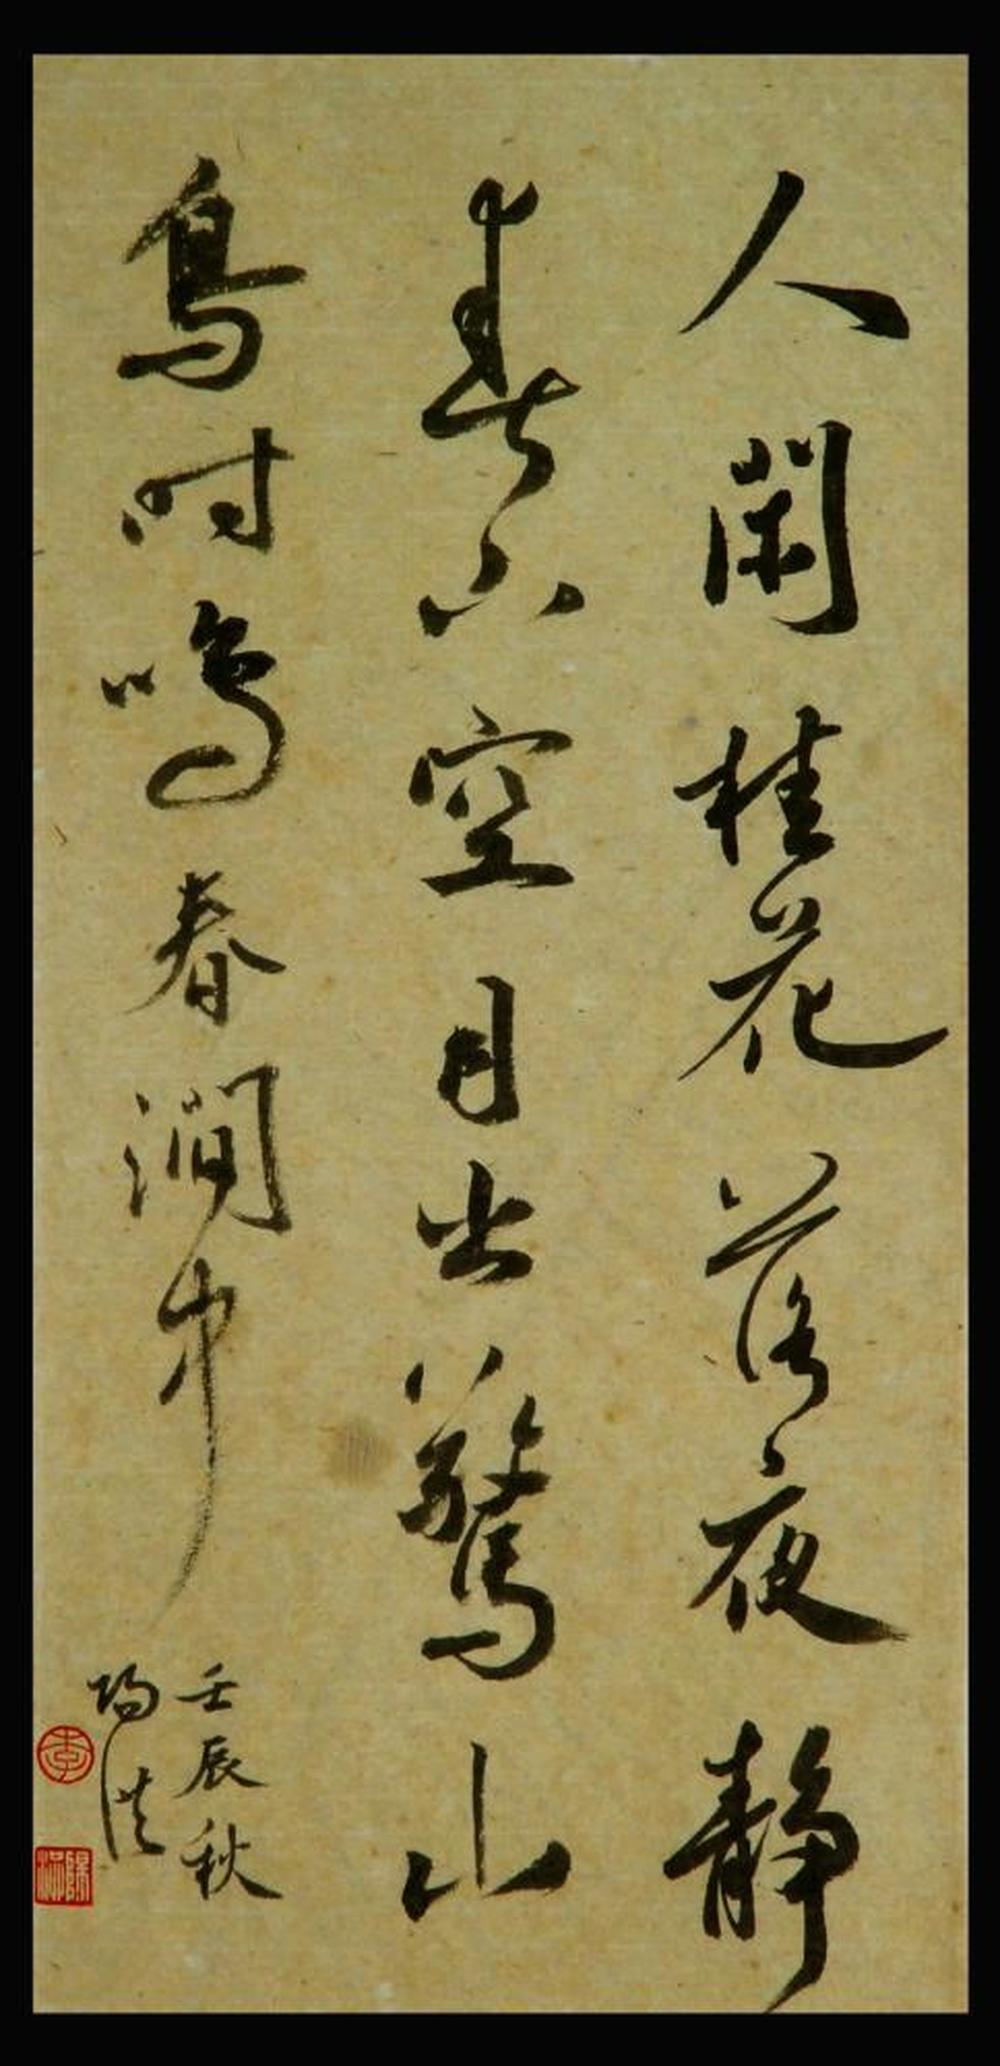 人閑桂花落夜靜
春山空月出驚山
鳥時鳴春澗中
壬辰秋